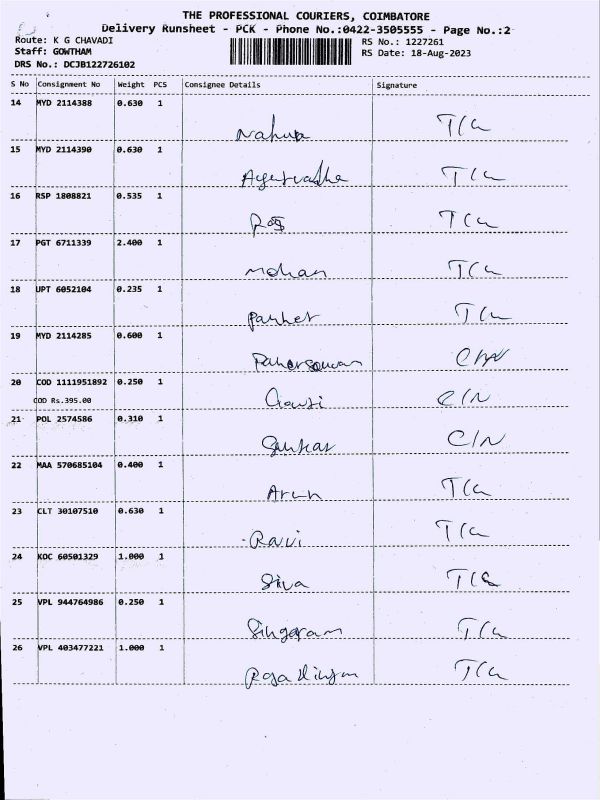 THE PROFESSIONAL COURIERS, COIMBATORE
Delivery Runsheet - PCK - Phone No.:0422-3505555 - Page No.:2
Route: K G CHAVADI
RS No.: 1227261
Staff: GOWTHAM
RS Date: 18-Aug-2023
DRS No.: DCJB122726102
S No Consignment No Weight PCS Consignee Details Signature
14 MYD 2114388 0.630 1
T/C
15 MYD 2114390 0.630 1
T/C
16 RSP 1808821 0.535 1
T/C
17 PGT 6711339 2.400 1
Mohan T/C
18 UPT 6052104 0.235 1
T/C
19 MYD 2114285 0.600 1
20 COD 1111951892 0.250 1
COD Rs.395.00
C/N
21 POL 2574586 0.310 1
C/N
22 MAA 570685104 0.400 1
Arun T/C
23 CLT 30107510 0.630 1
Ravi T/C
24 KOC 60501329 1.000 1
Siva T/C
25 VPL 944764986 0.250 1
Singaram T/C
26 VPL 403477221 1.000 1
T/C